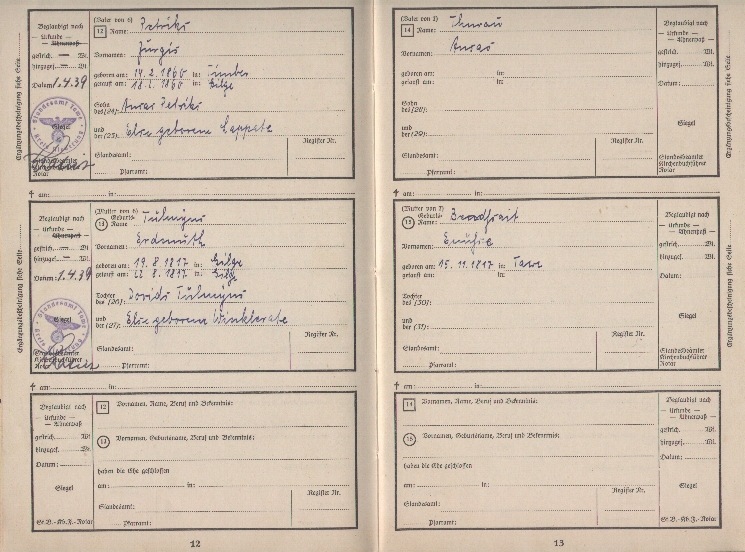 Beglaubigt nach
— Urkunde —
— Ahnenpaß —
gestrich. — W.
hinzugef. — W.
Datum 1.4.39
Siegel
Standesbeamter
Kirchenbuchführer
Notar
Ergänzungsbescheinigung siehe Seite
(Vater von 6)
12 Name: Petriks
Vornamen: Jurgis
geboren am: 14. 2. 1860 in:
getauft am: 18. 2. 1860 in: Gilge
Sohn des (24): Ansas Petriks
und der (25): Else geborene Lappate
Standesamt: Register Nr.
Pfarramt:
† am: in:
Beglaubigt nach
— Urkunde —
— Ahnenpaß —
gestrich. — W.
hinzugef. — W.
Datum: 1.4.39
Siegel
Standesbeamter
Kirchenbuchführer
Notar
Ergänzungsbescheinigung siehe Seite
(Mutter von 6)
13 Geburts-Name: Tulmijus
Vornamen: Erdmuth
geboren am: 19. 8. 1817 in: Gilge
getauft am: 22. 8. 1817 in: Gilge
Tochter des (26): Dovids Tulmijus
und der (27): Else geborene Winklerate
Standesamt: Register Nr.
Pfarramt:
† am: in:
Beglaubigt nach
— Urkunde —
— Ahnenpaß —
gestrich. W.
hinzugef. W.
Datum:
Siegel
St.B.-Kb.F.-Notar
12 Vornamen, Name, Beruf und Bekenntnis:
13 Vornamen, Geburtsname, Beruf und Bekenntnis:
haben die Ehe geschlossen
am: in:
Standesamt: Register Nr.
Pfarramt:
12
(Vater von 7)
14 Name: Thurau
Vornamen: Ansas
geboren am: in:
getauft am: in:
Sohn des (28):
und der (29):
Standesamt: Register Nr.
Pfarramt:
† am: in:
Beglaubigt nach
— Urkunde —
— Ahnenpaß —
gestrich. W.
hinzugef. W.
Datum:
Siegel
Standesbeamter
Kirchenbuchführer
Notar
Ergänzungsbescheinigung siehe Seite
(Mutter von 7)
15 Geburts-Name:
Vornamen:
geboren am: 15. 11. 1817 in: Tawe
getauft am: in:
Tochter des (30):
und der (31):
Standesamt: Register Nr.
Pfarramt:
† am: in:
Beglaubigt nach
— Urkunde —
— Ahnenpaß —
gestrich. W.
hinzugef. W.
Datum:
Siegel
Standesbeamter
Kirchenbuchführer
Notar
Ergänzungsbescheinigung siehe Seite
14 Vornamen, Name, Beruf und Bekenntnis:
15 Vornamen, Geburtsname, Beruf und Bekenntnis:
haben die Ehe geschlossen
am: in:
Standesamt: Register Nr.
Pfarramt:
Beglaubigt nach
— Urkunde —
— Ahnenpaß —
gestrich. W.
hinzugef. W.
Datum:
Siegel
St.B.-Kb.F.-Notar
13